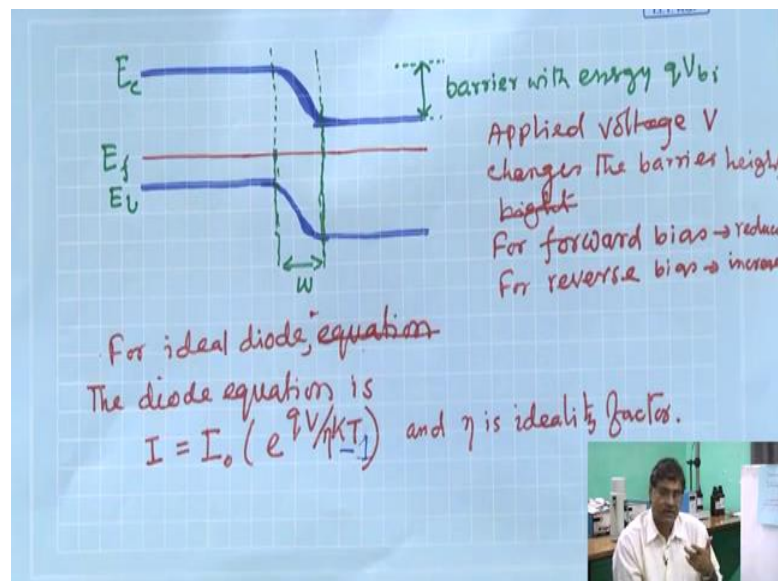 Ec
barrier with energy qVbi
Applied voltage V
Ef
changes The barrier heigh
Ev
hight
For forward bias → reduc
For reverse bias → increa
W
For ideal diode, equation
The diode equation is
I = I₀ ( e^qV/ηKT -1) and η is ideality factor.